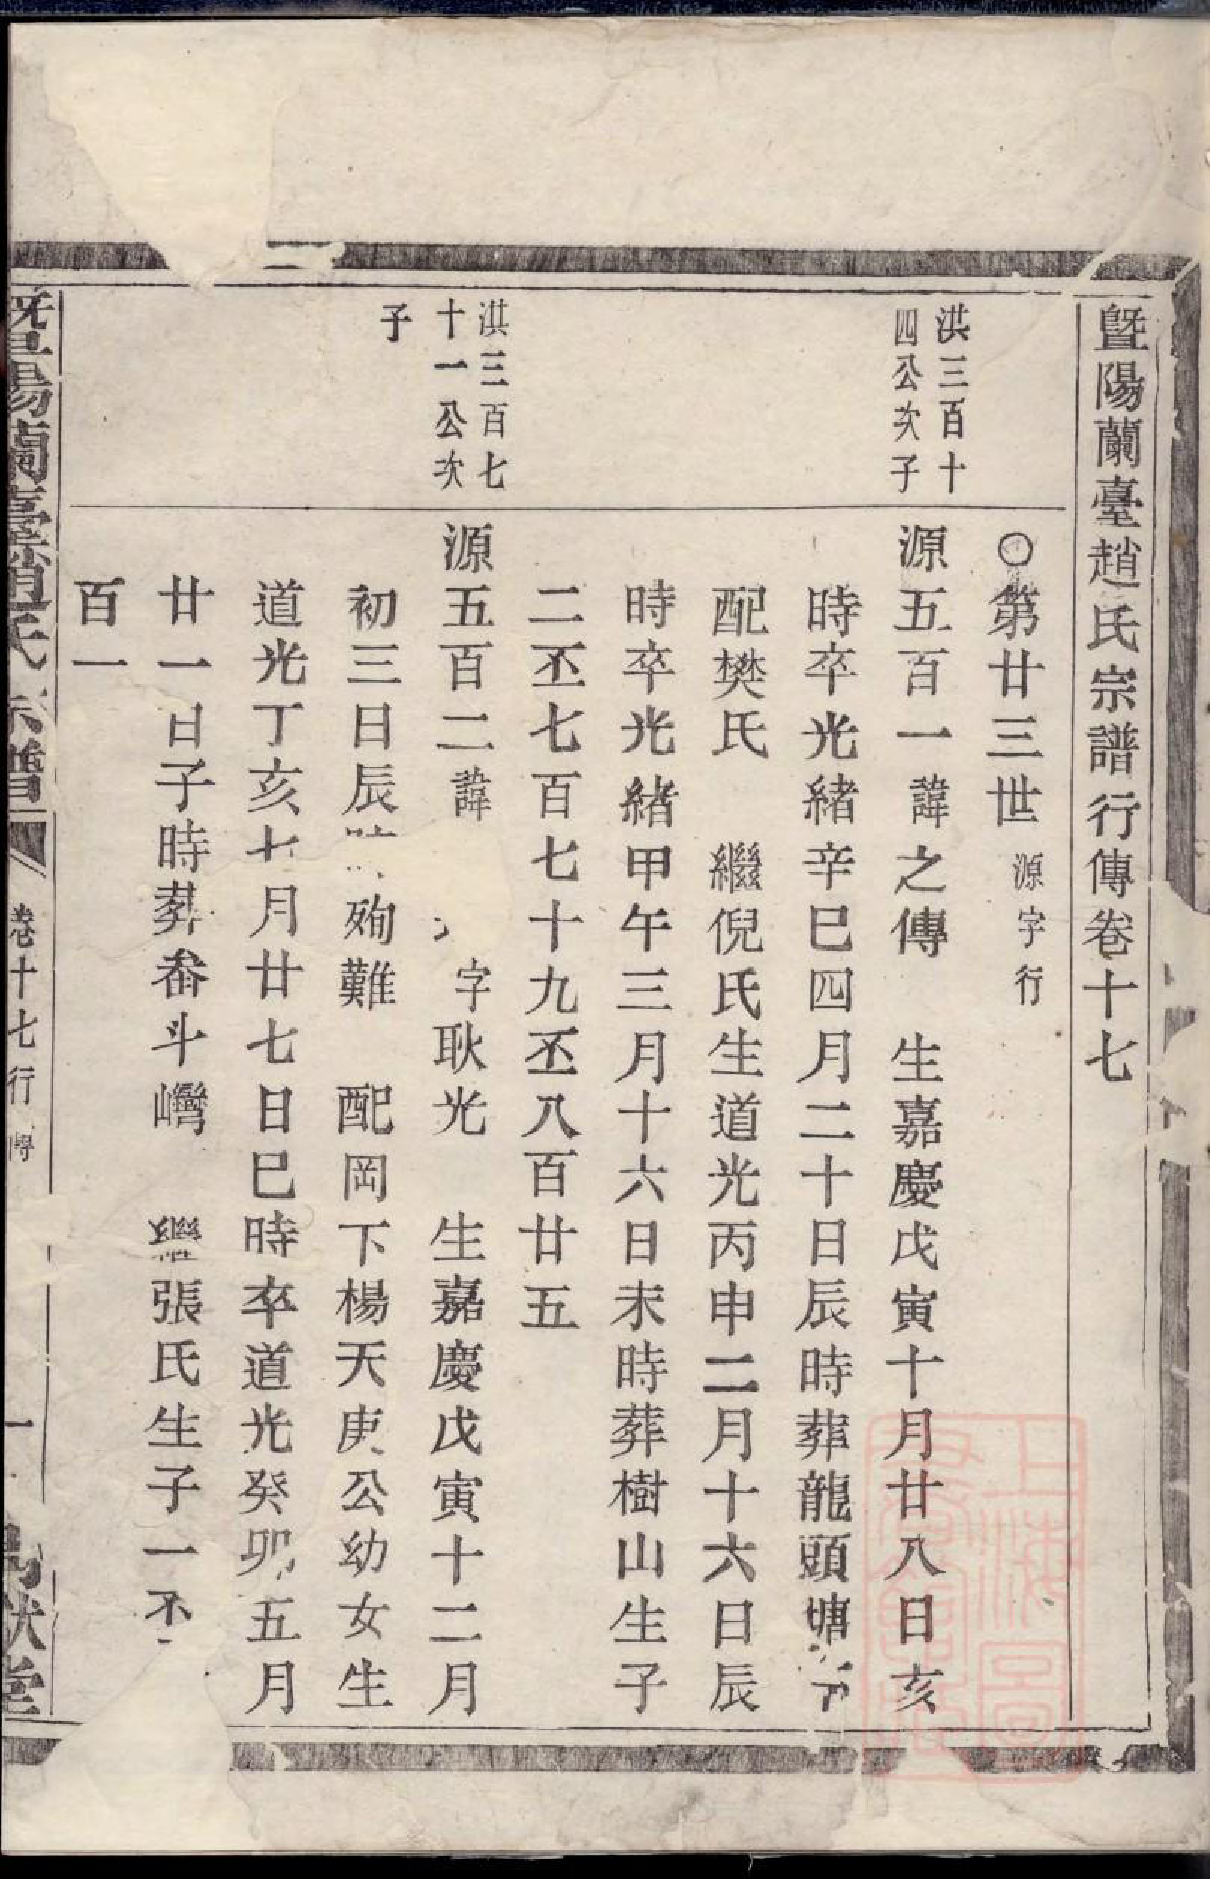 暨陽蘭臺趙氏宗譜行傳卷十七
○第廿三世 源字行
洪三百十
四公次子
源五百一諱之傳 生嘉慶戊寅十月廿八日亥
時卒光緒辛巳四月二十日辰時葬龍頭塘
配樊氏 繼倪氏生道光丙申二月十六日辰
時卒光緒甲午三月十六日未時葬樹山生子
二丕七百七十九丕八百廿五
洪三百七
十一公次
子
源五百二諱 字耿光 生嘉慶戊寅十二月
初三日辰 殉難 配岡下楊天庚公幼女生
道光丁亥七月廿七日巳時卒道光癸卯五月
廿一日子時葬畚斗巒 繼張氏生子一
百一
暨陽蘭臺趙氏宗譜 卷十七行傳 一 堂
上海圖